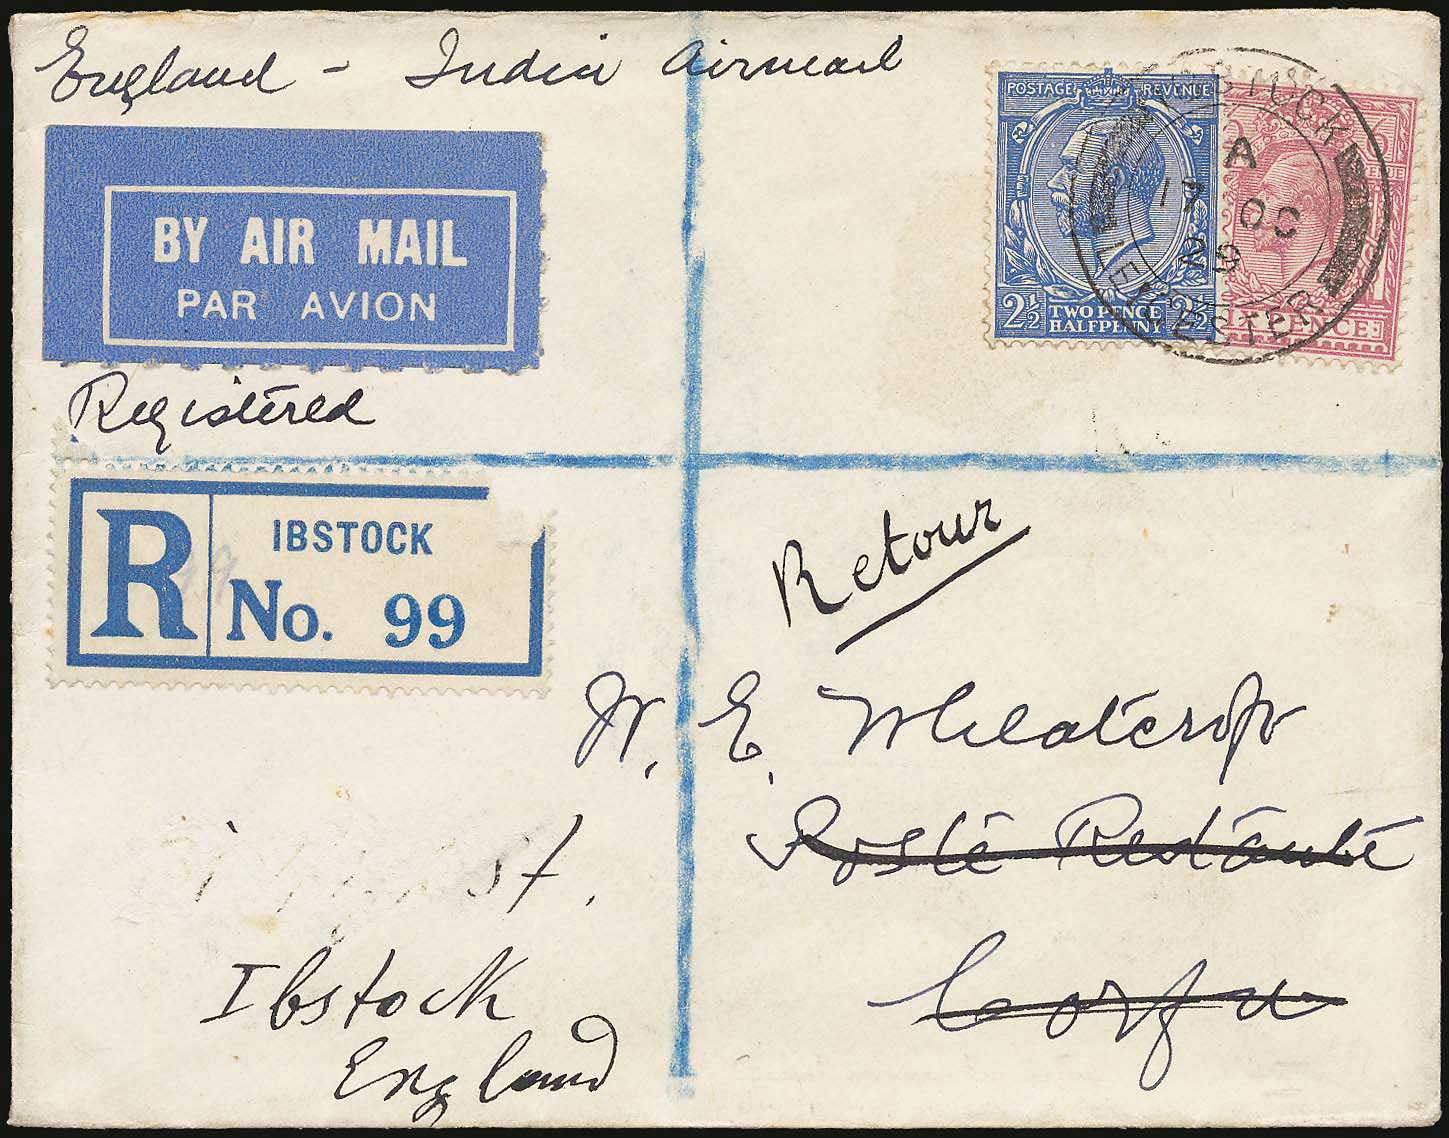 England - India Airmail
BY AIR MAIL
PAR AVION
POSTAGE REVENUE
2½ TWO PENCE 2½
HALFPENNY
SIX PENCE
IBSTOCK
A
17 OC
29
LEICESTER
Registered
R IBSTOCK
No. 99
Retour
W. E. Wheatcroft
Poste Restante
Corfu
St.
Ibstock
England